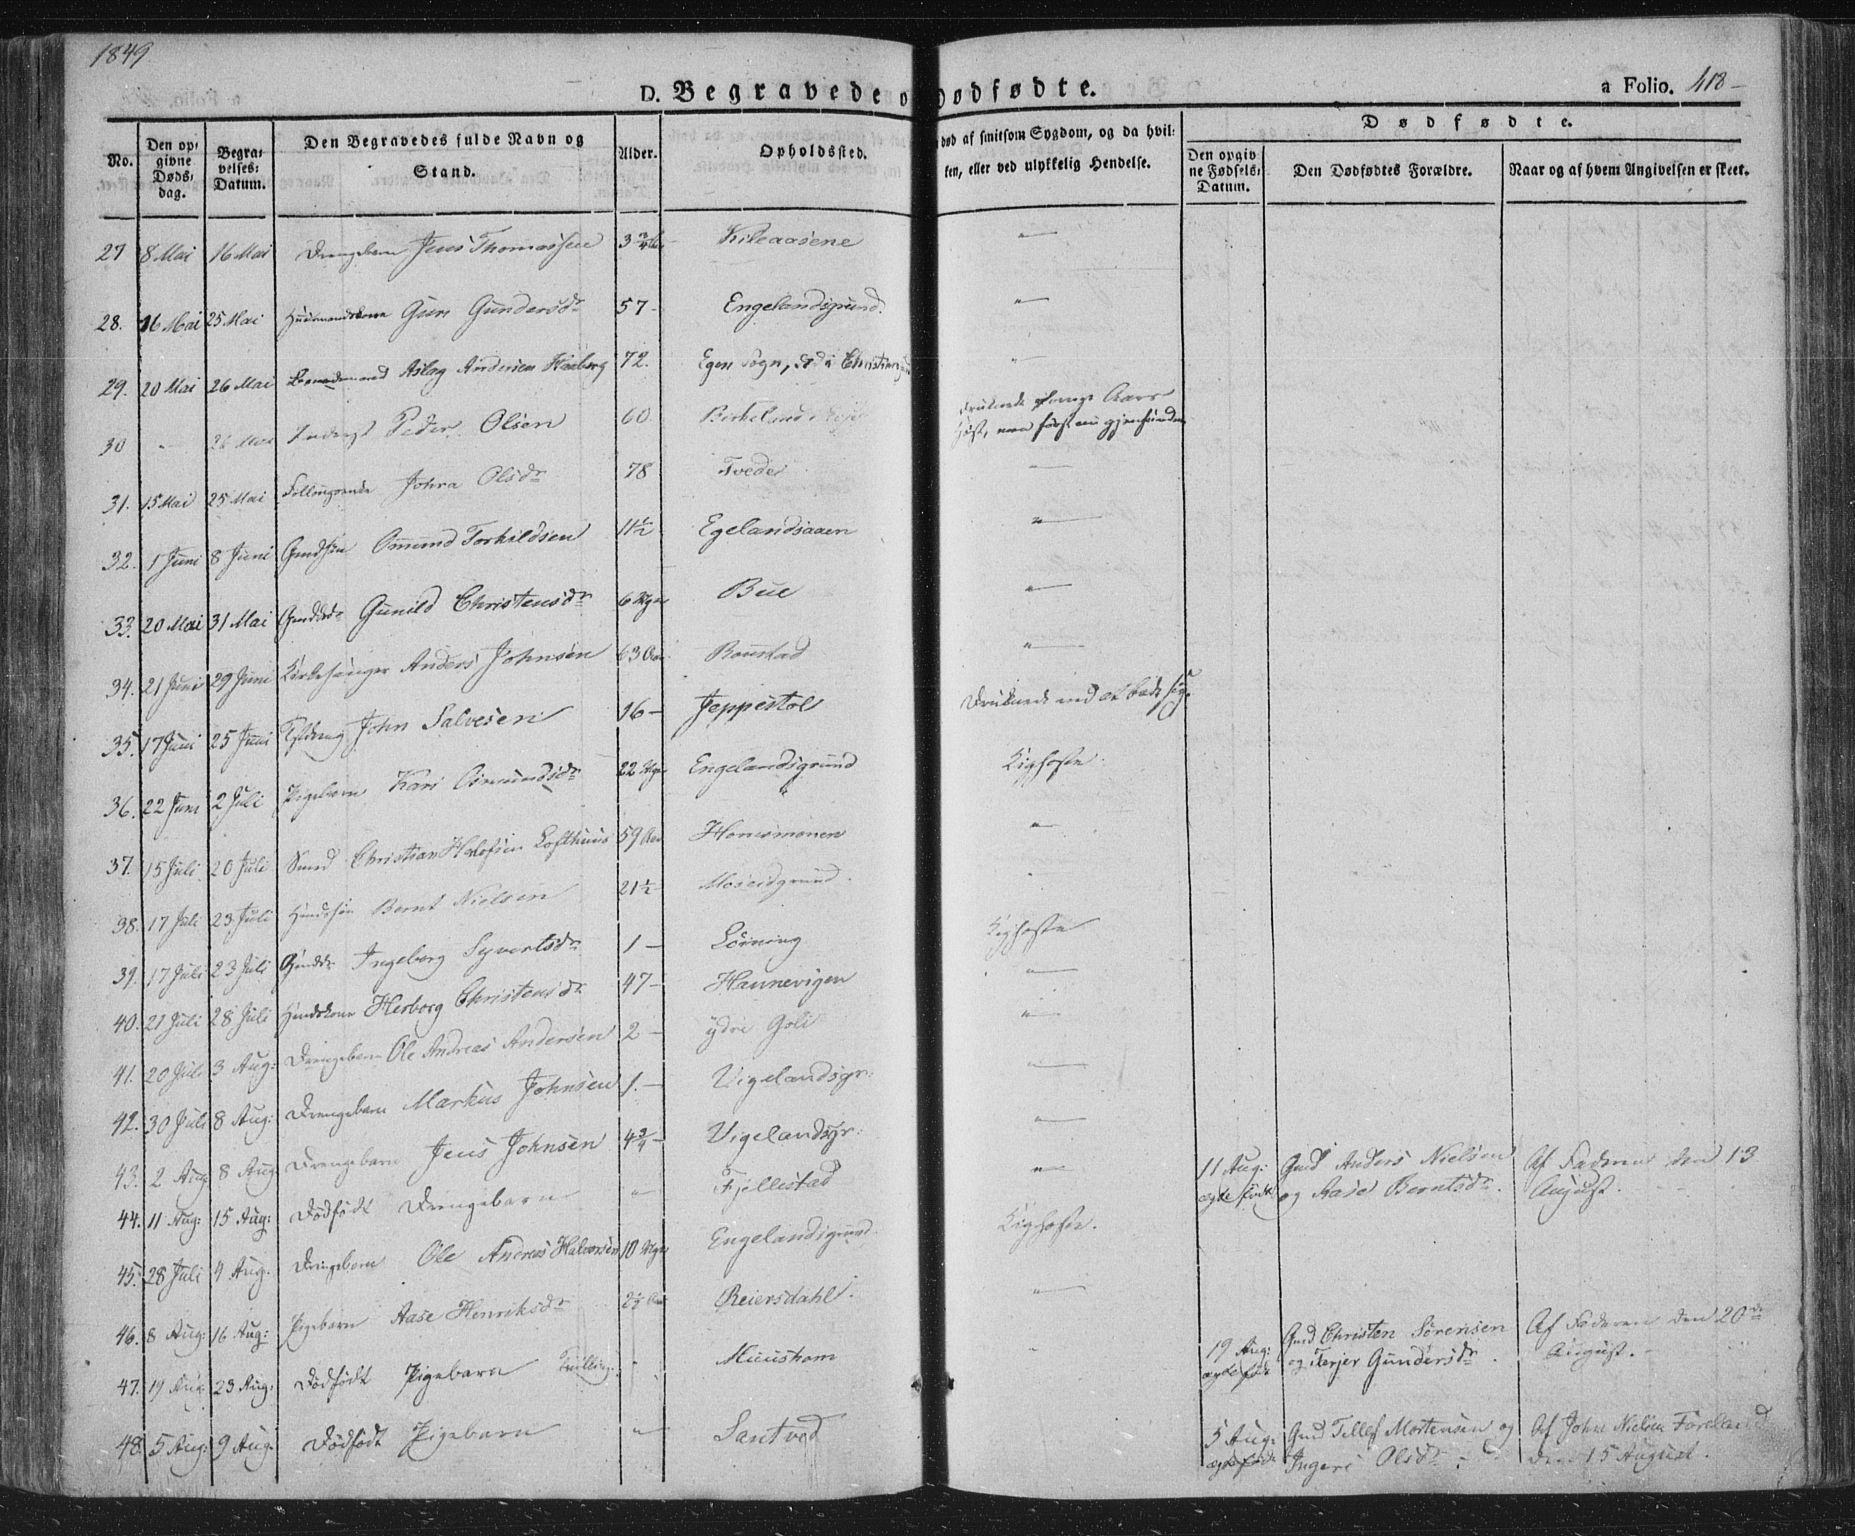 1849
D. Begravede o Dødfødte.
a Folio. 418
No.
Den opgivne Døds-dag.
Begravelses-Datum.
Den Begravedes fulde Navn og Stand.
Alder.
Opholdssted.
død af smitsom Sygdom, og da hvil-
ken, eller ved ulykkelig Hendelse.
Dødfødte.
Den opgivne Fødsels-Datum.
Den Dødfødtes Forældre.
Naar og af hvem Angivelsen er skeet.
27 8 Mai 16 Mai Drengebarn Jens Thomassen 3 3/4 Kileaasene "
28. 16 Mai 25 Mai Huusmandskone Guro Gundersdr 57 - Engelandsgrund. "
29. 20 Mai 26 Mai Aslag Andersen 72. Egen Sogn, død i "
30 - 26 Mai Peder Olsen 60 Birkeland Druknede Aars
Høst, men først nu gjenfunden
31. 15 Mai 25 Mai Johra Olsdr 78 Tvede "
32. 1 Juni 8 Juni Gmdssøn Omund Torkildsen 11 1/2 Egelandsaaen "
33. 20 Mai 31 Mai Gunild Christensdr 6 Ugr Bue "
34. 21 Juni 29 Juni Kirkesanger Anders Johnsen 63 Aar Bounstad "
35. 17 Juni 25 Juni John Salvesen 16 - Jeppestol Druknede ved at bade sig.
36. 22 Juni 2 Juli Pigebarn Kari Omundsdr 22 Ugr Engelandsgrund Kighoste
37. 15 Juli 20 Juli Smed Christian Lofthuus 59 Aar Honesmonen "
38. 17 Juli 23 Juli Bernt Nielsen 21 1/2 Moseidgrund. "
39. 17 Juli 23 Juli Ingeborg Syvertsdr 1 - Løining Kighoste
40. 21 Juli 28 Juli Hmdskone Herborg Christensdr 47 - Hannevigen "
41. 20 Juli 3 Aug: Drengebarn Ole Andreas Andersen 2 - ydre Goli "
42. 30 Juli 8 Aug: Drengebarn Markus Johnsen 1. - Vigelandsgr: "
43. 2 Aug 8 Aug Drengebarn Jens Johnsen 4 3/4 - Vigelandsgr: "
44. 11 Aug: 15 Aug: Dödfödt Drengebarn " Fjellestad " 11 Aug: Gmd Anders Nielsen Af Faderen den 13
ægte født og Aase Berntsdr. August.
45. 28 Juli 4 Aug. Drengebarn Ole Andreas Halvorsen 10 Ugr Engelandsgrund Kighoste.
46. 8 Aug: 16 Aug: Pigebarn Aase Henriksdr 2 1/2 Aar Reiersdahl. "
47. 19 Aug. 23 Aug: Dödfödt Pigebarn Tvilling. " Muusham " 19 Aug: Gmd Christen Sörensen Af Faderen den 20de
ægte født og Terjer Gundersdr. August.
48. 5 Aug: 9 Aug. Dödfödt Pigebarn " Santved 5 Aug: Gmd Tellef Mortensen og Af John Nielsen Föreland
ægte født Ingeri Olsdr. den 15 August.